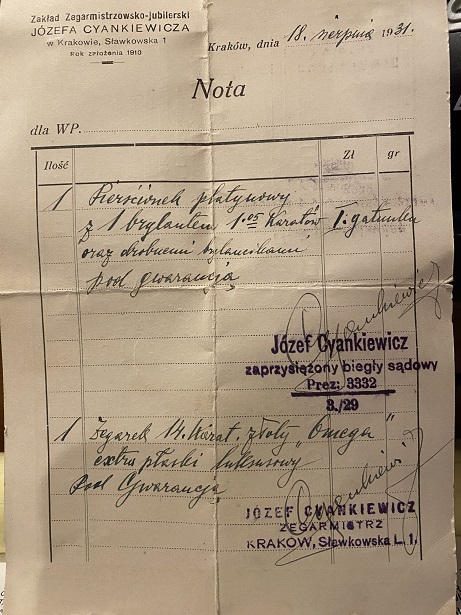 Zakład Zegarmistrzowsko-Jubilerski
JÓZEFA CYANKIEWICZA
w Krakowie, Sławkowska 1
Rok założenia 1910
Kraków, dnia 18. sierpnia 1931.
Nota
dla WP.
Ilość Zł gr
1 Pierścionek platynowy
z 1 brylantem 1.05 Karatów I. gatunku
oraz drobnemi brylancikami
pod gwarancją
Józef Cyankiewicz
zaprzysiężony biegły sądowy
Prez: 3332
3./29
1 Zegarek 14. Karat. złoty „Omega"
extra płaski luksusowy
Pod Gwarancją
JÓZEF CYANKIEWICZ
ZEGARMISTRZ
KRAKÓW, Sławkowska L. 1.